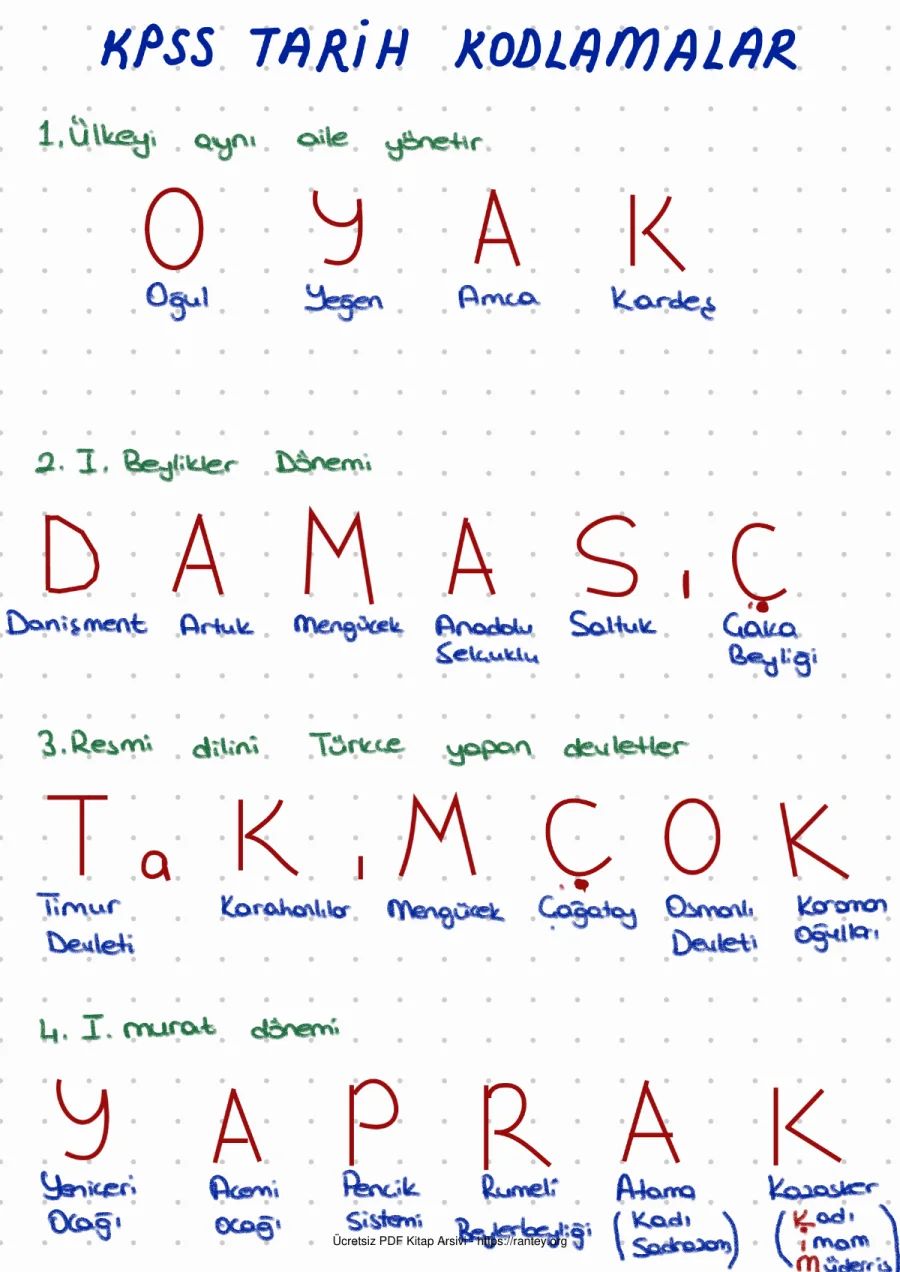 KPSS TARİH KODLAMALAR
1. Ülkeyi aynı aile yönetir
O Y A K
Oğul Yeğen Amca Kardeş
2. I. Beylikler Dönemi
D A M A S ı Ç
Danişment Artuk Mengücek Anadolu Selçuklu Saltuk Çaka Beyliği
3. Resmi dilini Türkçe yapan devletler
T a K ı M Ç O K
Timur Devleti Karahanlılar Mengücek Çağatay Osmanlı Devleti Karaman Oğulları
4. I. murat dönemi
Y A P R A K
Yeniçeri Ocağı Acemi ocağı Pencik Sistemi Rumeli Beylerbeyliği Atama (Kadı Sadrazam) Kazasker (Kadı imam müderris)
Ücretsiz PDF Kitap Arsivi - https://rantey.org